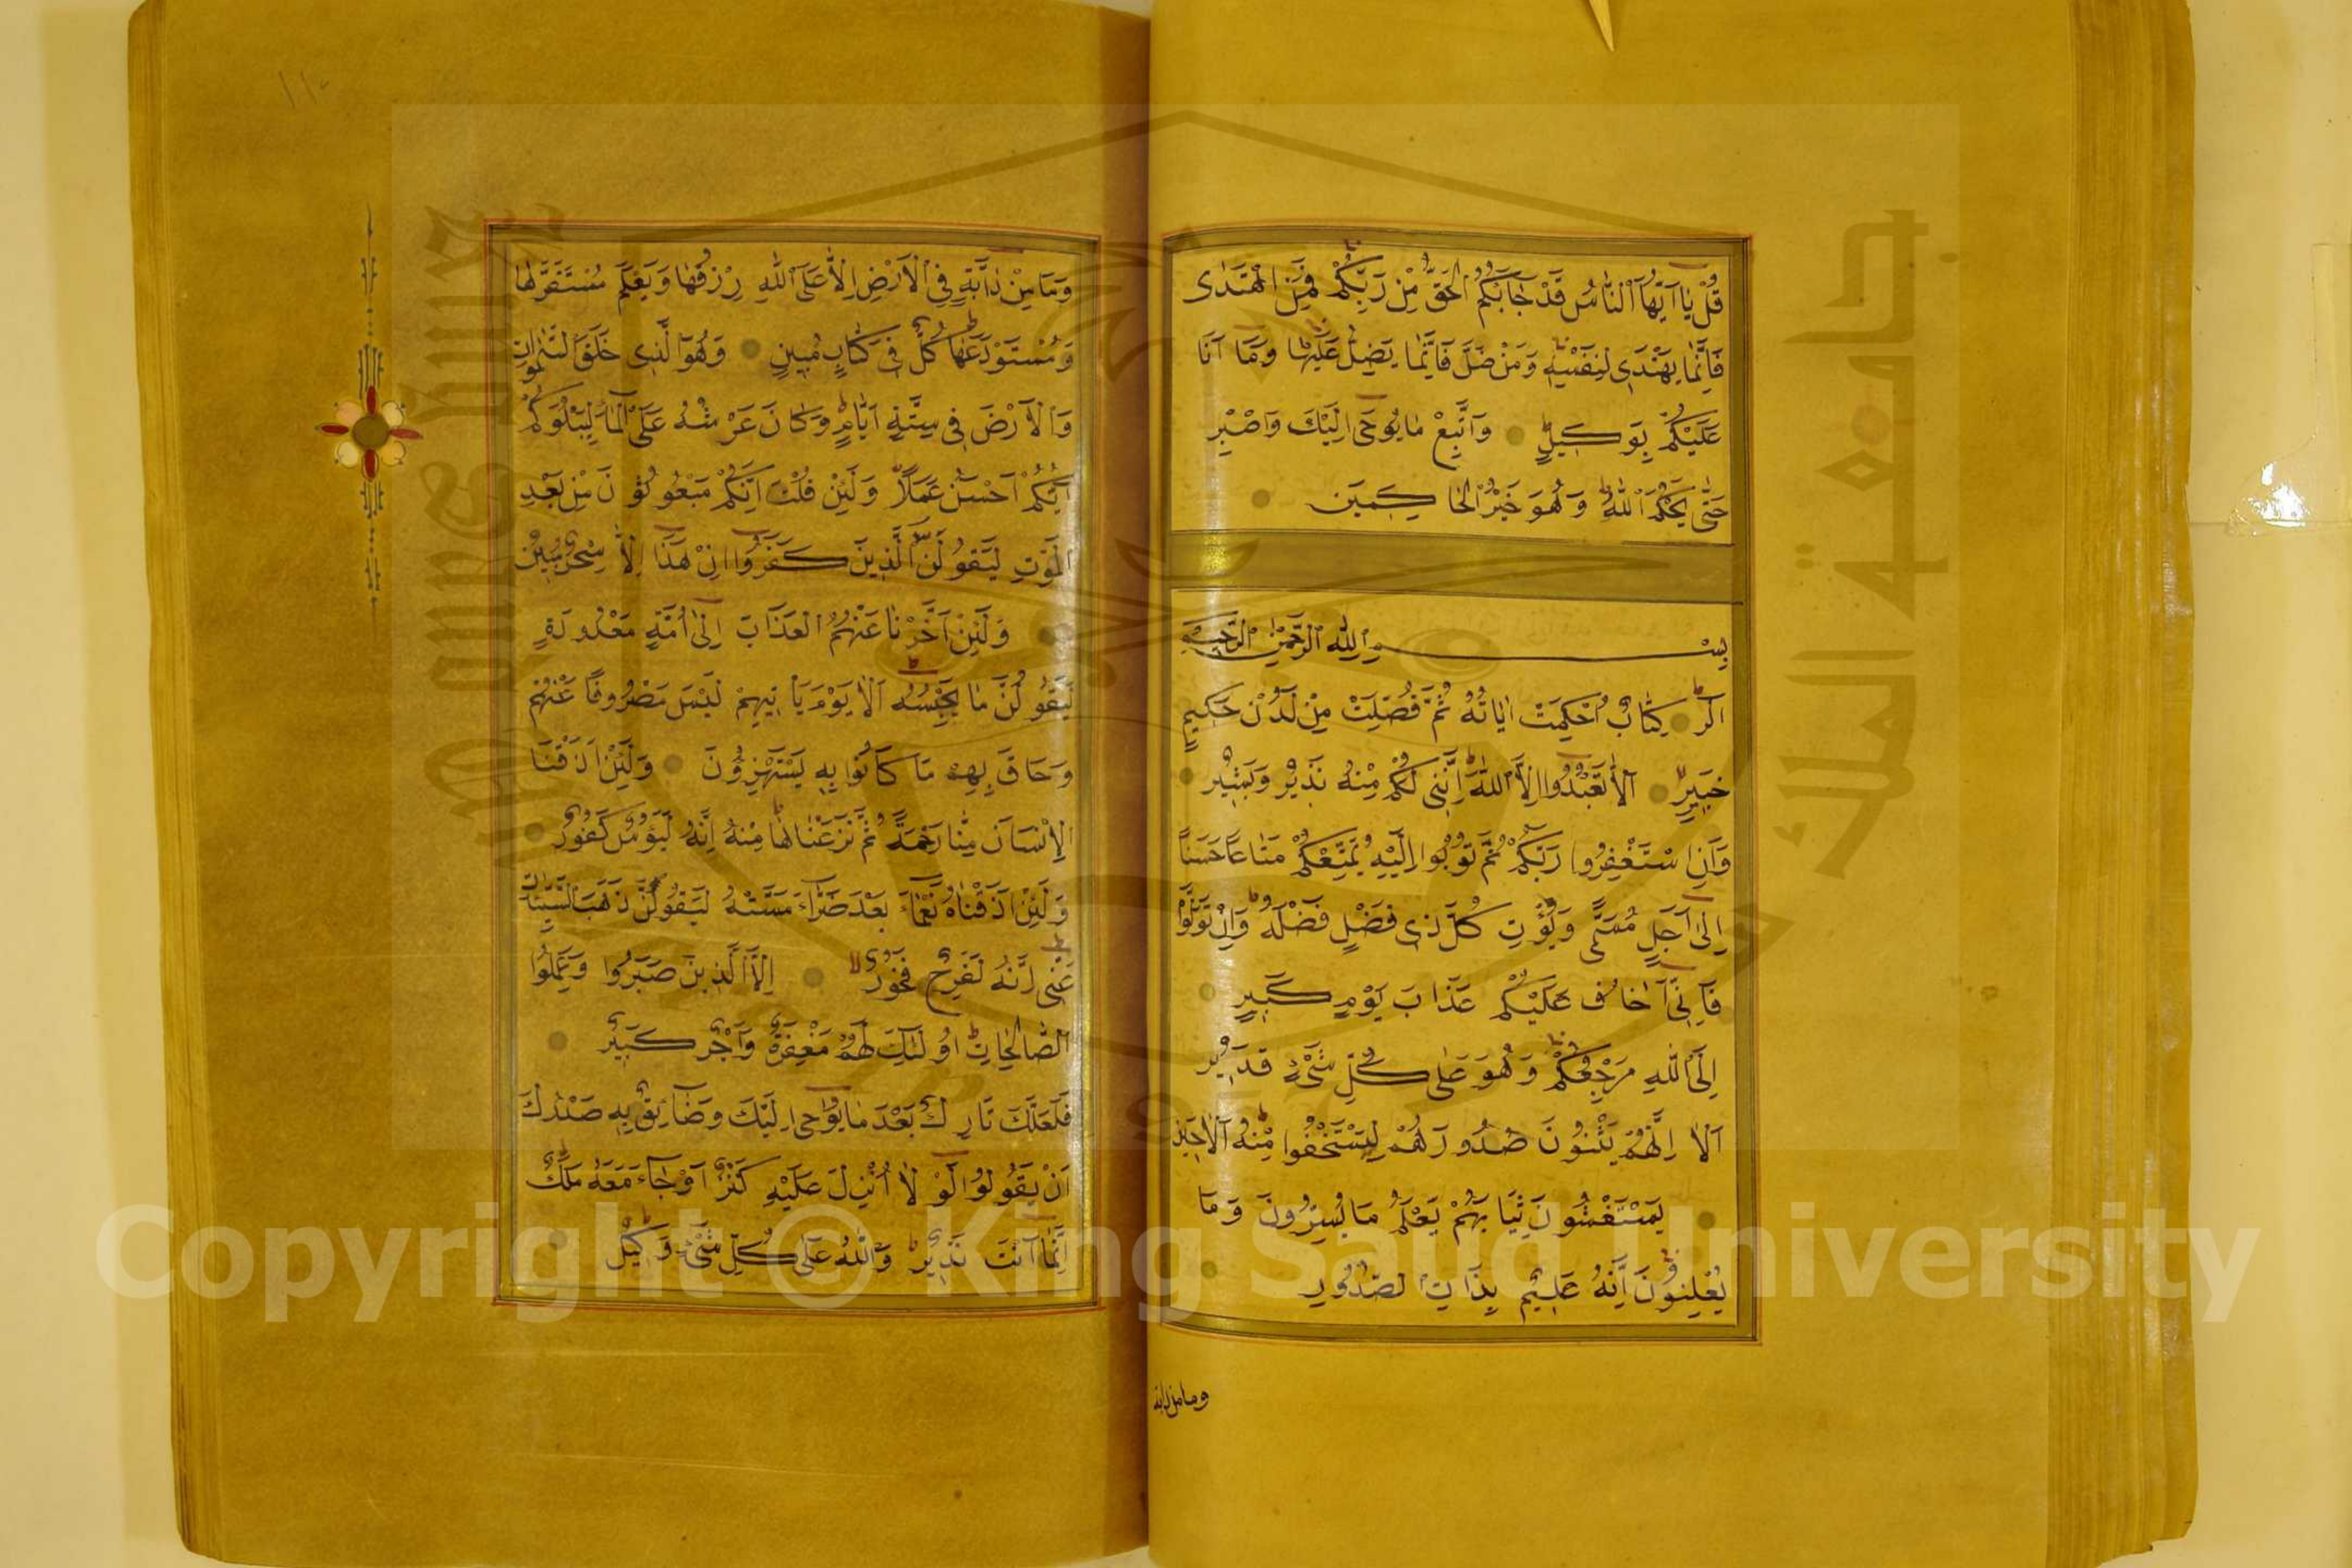 قُلْ يَا اَيُّهَا النَّاسُ قَدْ جَاءَكُمُ الْحَقُّ مِنْ رَبِّكُمْ فَمَنِ اهْتَدٰى
فَاِنَّمَا يَهْتَدِى لِنَفْسِهِ وَمَنْ ضَلَّ فَاِنَّمَا يَضِلُّ عَلَيْهَا وَمَا اَنَا
عَلَيْكُمْ بِوَكِيلٍ وَاتَّبِعْ مَا يُوحٰى اِلَيْكَ وَاصْبِرْ
حَتّٰى يَحْكُمَ اللّٰهُ وَهُوَ خَيْرُ الْحَاكِمِينَ
بِسْمِ اللّٰهِ الرَّحْمٰنِ الرَّحِيمِ
الٓرٰ كِتَابٌ اُحْكِمَتْ اٰيَاتُهُ ثُمَّ فُصِّلَتْ مِنْ لَدُنْ حَكِيمٍ
خَبِيرٍ اَلَّا تَعْبُدُوا اِلَّا اللّٰهَ اِنَّنِى لَكُمْ مِنْهُ نَذِيرٌ وَبَشِيرٌ
وَاَنِ اسْتَغْفِرُوا رَبَّكُمْ ثُمَّ تُوبُوا اِلَيْهِ يُمَتِّعْكُمْ مَتَاعًا حَسَنًا
اِلٰى اَجَلٍ مُسَمًّى وَيُؤْتِ كُلَّ ذِى فَضْلٍ فَضْلَهُ وَاِنْ تَوَلَّوْا
فَاِنِّى اَخَافُ عَلَيْكُمْ عَذَابَ يَوْمٍ كَبِيرٍ
اِلَى اللّٰهِ مَرْجِعُكُمْ وَهُوَ عَلٰى كُلِّ شَىْءٍ قَدِيرٌ
اَلَا اِنَّهُمْ يَثْنُونَ صُدُورَهُمْ لِيَسْتَخْفُوا مِنْهُ اَلَا حِينَ
يَسْتَغْشُونَ ثِيَابَهُمْ يَعْلَمُ مَا يُسِرُّونَ وَمَا
يُعْلِنُونَ اِنَّهُ عَلِيمٌ بِذَاتِ الصُّدُورِ
وما من دابة
١١٠
وَمَا مِنْ دَابَّةٍ فِى الْاَرْضِ اِلَّا عَلَى اللّٰهِ رِزْقُهَا وَيَعْلَمُ مُسْتَقَرَّهَا
وَمُسْتَوْدَعَهَا كُلٌّ فِى كِتَابٍ مُبِينٍ وَهُوَ الَّذِى خَلَقَ السَّمٰوَاتِ
وَالْاَرْضَ فِى سِتَّةِ اَيَّامٍ وَكَانَ عَرْشُهُ عَلَى الْمَاءِ لِيَبْلُوَكُمْ
اَيُّكُمْ اَحْسَنُ عَمَلًا وَلَئِنْ قُلْتَ اِنَّكُمْ مَبْعُوثُونَ مِنْ بَعْدِ
الْمَوْتِ لَيَقُولَنَّ الَّذِينَ كَفَرُوا اِنْ هٰذَا اِلَّا سِحْرٌ مُبِينٌ
وَلَئِنْ اَخَّرْنَا عَنْهُمُ الْعَذَابَ اِلٰى اُمَّةٍ مَعْدُودَةٍ
لَيَقُولُنَّ مَا يَحْبِسُهُ اَلَا يَوْمَ يَأْتِيهِمْ لَيْسَ مَصْرُوفًا عَنْهُمْ
وَحَاقَ بِهِمْ مَا كَانُوا بِهِ يَسْتَهْزِؤُنَ وَلَئِنْ اَذَقْنَا
الْاِنْسَانَ مِنَّا رَحْمَةً ثُمَّ نَزَعْنَاهَا مِنْهُ اِنَّهُ لَيَؤُسٌ كَفُورٌ
وَلَئِنْ اَذَقْنَاهُ نَعْمَاءَ بَعْدَ ضَرَّاءَ مَسَّتْهُ لَيَقُولَنَّ ذَهَبَ السَّيِّئَاتُ
عَنِّى اِنَّهُ لَفَرِحٌ فَخُورٌ اِلَّا الَّذِينَ صَبَرُوا وَعَمِلُوا
الصَّالِحَاتِ اُولٰئِكَ لَهُمْ مَغْفِرَةٌ وَاَجْرٌ كَبِيرٌ
فَلَعَلَّكَ تَارِكٌ بَعْضَ مَا يُوحٰى اِلَيْكَ وَضَائِقٌ بِهِ صَدْرُكَ
اَنْ يَقُولُوا لَوْلَا اُنْزِلَ عَلَيْهِ كَنْزٌ اَوْ جَاءَ مَعَهُ مَلَكٌ
اِنَّمَا اَنْتَ نَذِيرٌ وَاللّٰهُ عَلٰى كُلِّ شَىْءٍ وَكِيلٌ
جامعة الملك سعود
King Saud University
Copyright © King Saud University